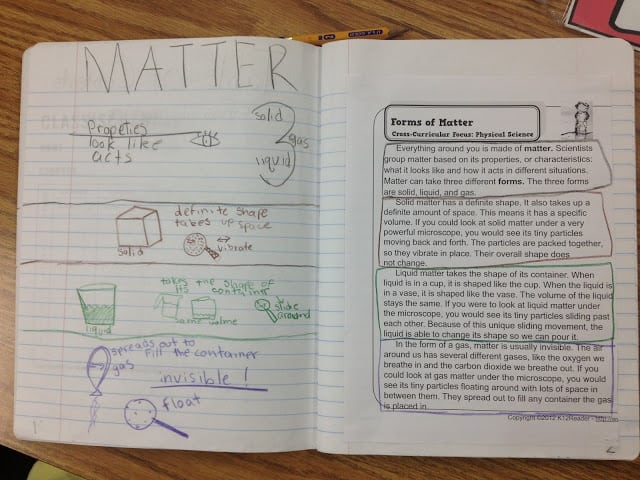 MATTER
Propeties
look like
acts
solid
gas
liquid
definite shape
takes up space
solid
vibrate
takes the shape of
its containts
same volme
slide
around
liquid
spreads out to
fill the container
gas
invisible!
float
Forms of Matter
Cross-Curricular Focus: Physical Science
Everything around you is made of matter. Scientists
group matter based on its properties, or characteristics:
what it looks like and how it acts in different situations.
Matter can take three different forms. The three forms
are solid, liquid, and gas.
Solid matter has a definite shape. It also takes up a
definite amount of space. This means it has a specific
volume. If you could look at solid matter under a very
powerful microscope, you would see its tiny particles
moving back and forth. The particles are packed together,
so they vibrate in place. Their overall shape does
not change.
Liquid matter takes the shape of its container. When
liquid is in a cup, it is shaped like the cup. When the liquid is
in a vase, it is shaped like the vase. The volume of the liquid
stays the same. If you were to look at liquid matter under
the microscope, you would see its tiny particles sliding past
each other. Because of this unique sliding movement, the
liquid is able to change its shape so we can pour it.
In the form of a gas, matter is usually invisible. The air
around us has several different gases, like the oxygen we
breathe in and the carbon dioxide we breathe out. If you
could look at gas matter under the microscope, you would
see its tiny particles floating around with lots of space in
between them. They spread out to fill any container the gas
is placed in.
Copyright ©2012 K12Reader - http://
2